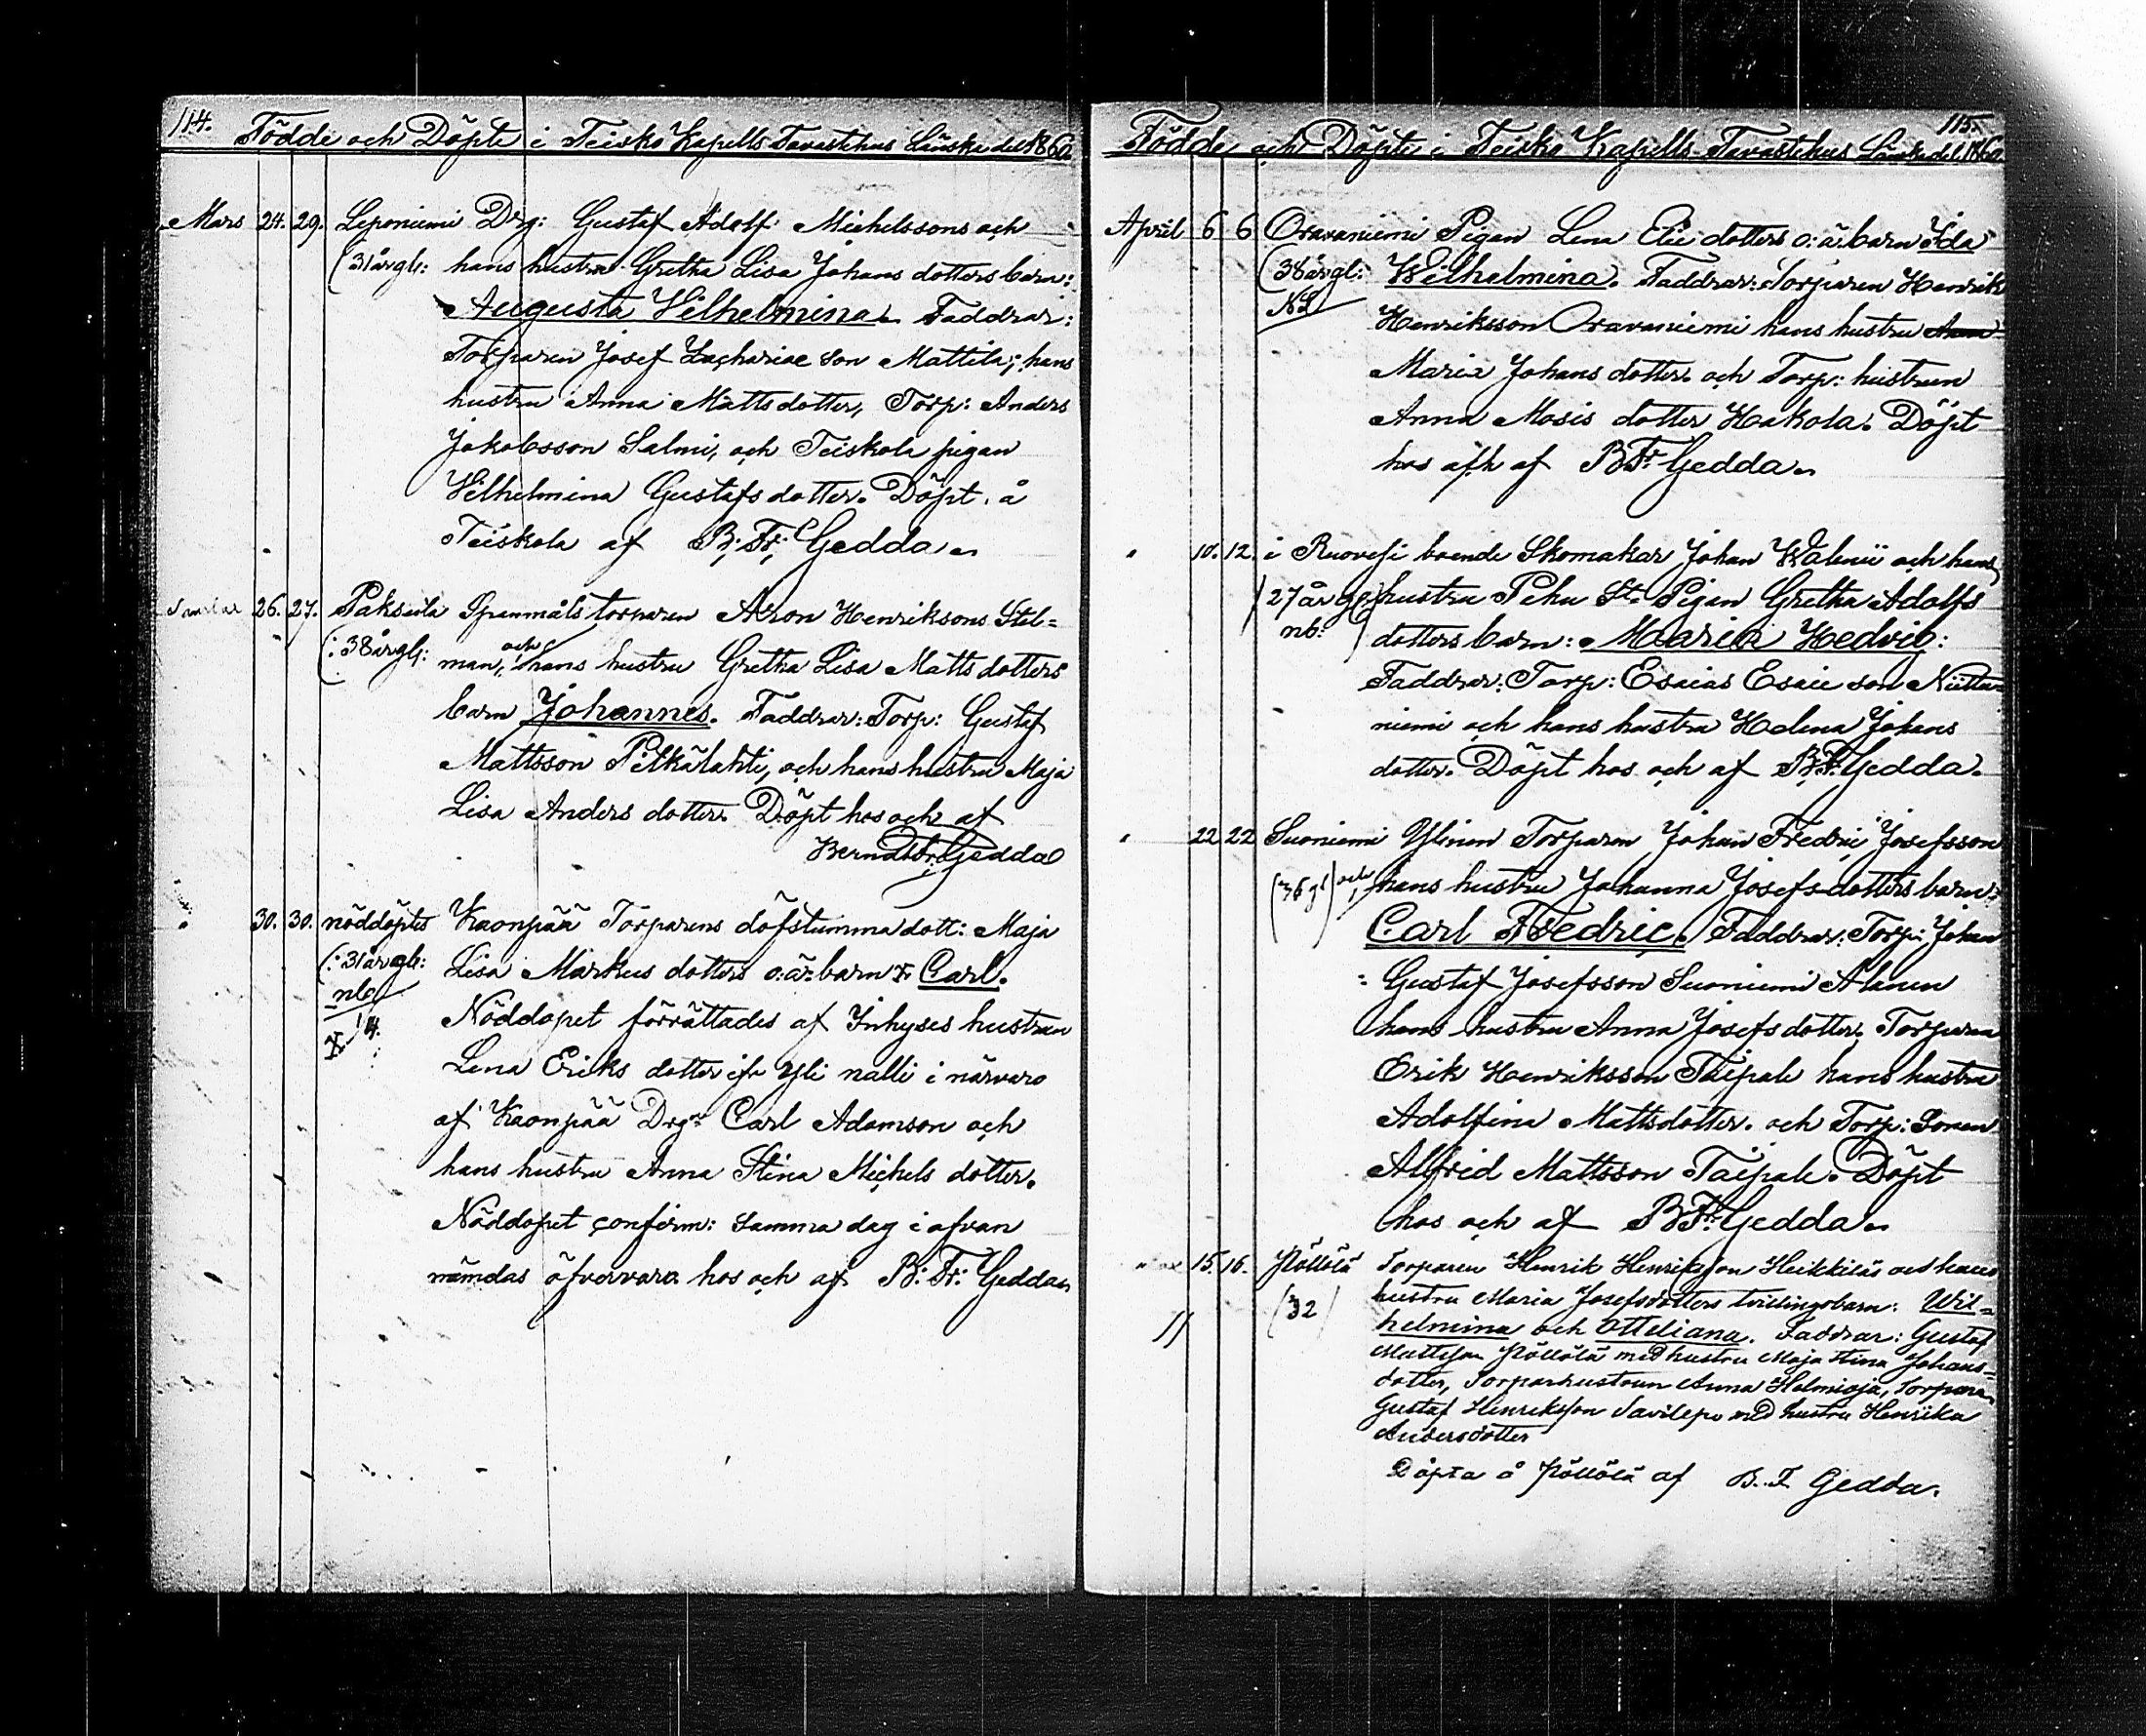 114.
Födde och Döpte i Teisko Kapells Tavastehus Länske del 1860
Mars 24. 29. Leponiemi Drg: Gustaf Adolf Michelssons och
(31 årgl: hans hustru Gretha Lisa Johans dotters barn:
Augusta Vilhelmina. Faddrar:
Torparen Josef Zachariae son Mattila; hans
hustru Anna Matts dotter, Torp: Anders
Jakobsson Salmi, och Teiskola pigan
Vilhelmina Gustafs dotter. Döpt å
Teiskola af B: Fr: Gedda.
26. 27. Paksula Spanmåls torparen Aron Henriksons Stel=
(: 38 årgl: man, och hans hustru Gretha Lisa Matts dotters
barn Johannes. Faddrar: Torp: Gustaf
Mattsson Pitkälahti, och hans hustru Maja
Lisa Anders dotter. Döpt hos och af
Berndt Fr: Gedda
" 30. 30. nöddöptes Kaonpää Torparens döfstumma dott: Maja
(: 31 år gl: Lisa Markus dotters o: ä: barn Carl.
nb Nöddopet förrättades af Inhyses hustrun
X 4. Lena Eriks dotter ifr Yli nalli i närvaro
af Kaonpää Drg: Carl Adamson och
hans hustru Anna Stina Michels dotter.
Nöddopet confirm: samma dag i ofvan
nämdas öfvervaro hos och af B: Fr: Gedda
115.
Födde och Döpte i Teisko Kapells Tavastehus Länske del 1860
April 6 6 Oravaniemi Pigan Lena Elie dotters o: ä: barn Ida
(38 årgl: Wilhelmina. Faddrar: Torparen Henrik
NB Henriksson Oravaniemi hans hustru
Maria Johans dotter. och Torp: hustrun
Anna Mosis dotter Hakola. Döpt
hos och af B Fr: Gedda.
" 10. 12. i Ruovesi boende Skomakar Johan Walenii och hans
27 år gl hustru Pehu St. Pigan Gretha Adolfs
nb: dotters barn: Maria Hedvig:
Faddrar: Torp: Esaias Esaie son Niitta=
niemi och hans hustru Helena Johans
dotter. Döpt hos och af B. Fr. Gedda.
" 22 22 Suoniemi Ylinen Torparen Johan Fredric Josefsson
(36 gl) och hans hustru Johanna Josefs dotters barn:
Carl Fredric. Faddrar: Torp: Johan
Gustaf Josefsson Suoniemi Alanen
hans hustru Anna Josefs dotter. Torparen
Erik Henriksson Taipale hans hustru
Adolfina Mattsdotter. och Torp: Sonen
Alfrid Mattsson Taipale. Döpt
hos och af B Fr: Gedda.
15. 16. Pöllölä Torparen Henrik Henriksson Heikkiläs och hans
(32) hustru Maria Josefsdotters tvillingobarn: Wil=
// helmina och Otteliana. Faddrar: Gustaf
Mattsson Pöllölä med hustru Maja Stina Johans=
dotter, Torparhustrun Anna Helmioja, Torparen
Gustaf Henriksson Savilepo med hustru Henrika
Andersdotter
Döpta å Pöllölä af B. F. Gedda.